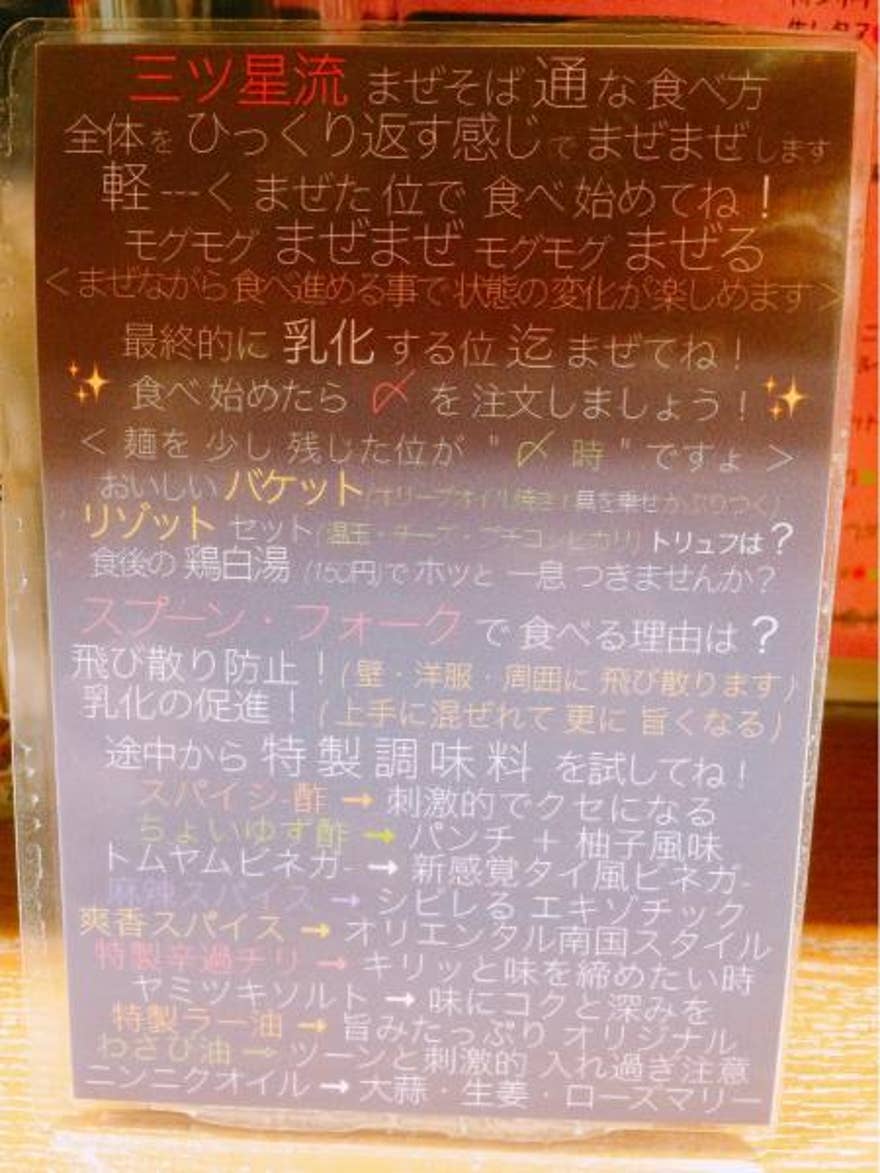 三ツ星流 まぜそば 通 な 食べ方
全体を ひっくり返す感じで まぜまぜします
軽---く まぜた 位で 食べ 始めてね！
モグモグ まぜまぜ モグモグ まぜる
<まぜながら食べ進める事で状態の変化が楽しめます>
最終的に 乳化 する位 迄 まぜてね！
食べ 始めたら 〆 を 注文しましょう！
< 麺を 少し 残じた 位が "〆 時" ですょ >
おいしい バケット (オリーブオイル焼き！具を乗せ かぶりつく)
リゾット セット (温玉・チーズ・プチコシヒカリ) トリュフは？
食後の 鶏白湯 (150円)で ホッと 一息 つきませんか？
スプーン・フォーク で 食べる 理由は？
飛び散り防止！(壁・洋服・周囲に 飛び散ります)
乳化の促進！(上手に混ぜれて 更に 旨くなる)
途中から 特製調味料 を試してね！
スパイシ-酢 → 刺激的でクセになる
ちょいゆず酢 → パンチ + 柚子風味
トムヤムビネガ- → 新感覚タイ風ビネガ-
麻辣スパイス → シビレる エキゾチック
爽香スパイス → オリエンタル南国スタイル
特製辛過チリ → キリッと味を締めたい時
ヤミツキソルト → 味にコクと深みを
特製ラー油 → 旨みたっぷり オリジナル
わさび油 → ツーンと刺激的 入れ過ぎ注意
ニンニクオイル → 大蒜・生姜・ローズマリー